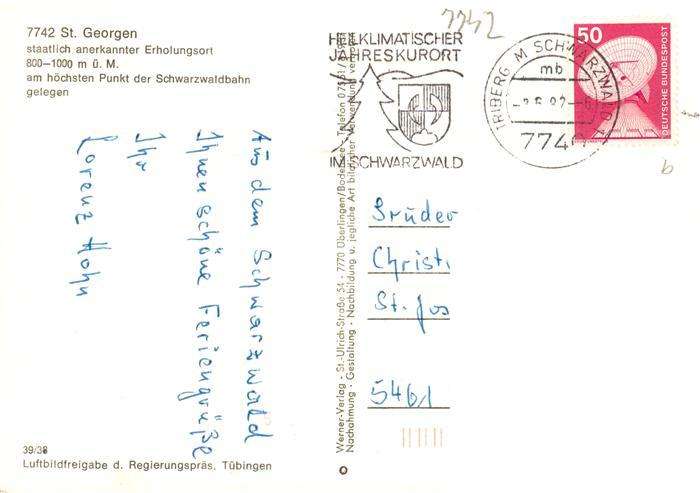 7742 St. Georgen
staatlich anerkannter Erholungsort
800—1000 m ü. M.
am höchsten Punkt der Schwarzwaldbahn
gelegen
Aus dem Schwarzwald
Ihnen schöne Feriengrüße
Ihr
Lorenz Hohn
39/38
Luftbildfreigabe d. Regierungspräs. Tübingen
Werner-Verlag · St.-Ulrich-Straße 54 · 7770 Überlingen/Bodensee · Telefon 07551/
Nachahmung · Gestaltung · Nachbildung u. jegliche Art bildlicher Verwendung verboten
7742
HEILKLIMATISCHER
JAHRESKURORT
IM SCHWARZWALD
TRIBERG IM SCHWARZWALD
mb
774
50
DEUTSCHE BUNDESPOST
b
Brüder
Christ.
St. Jos
5461